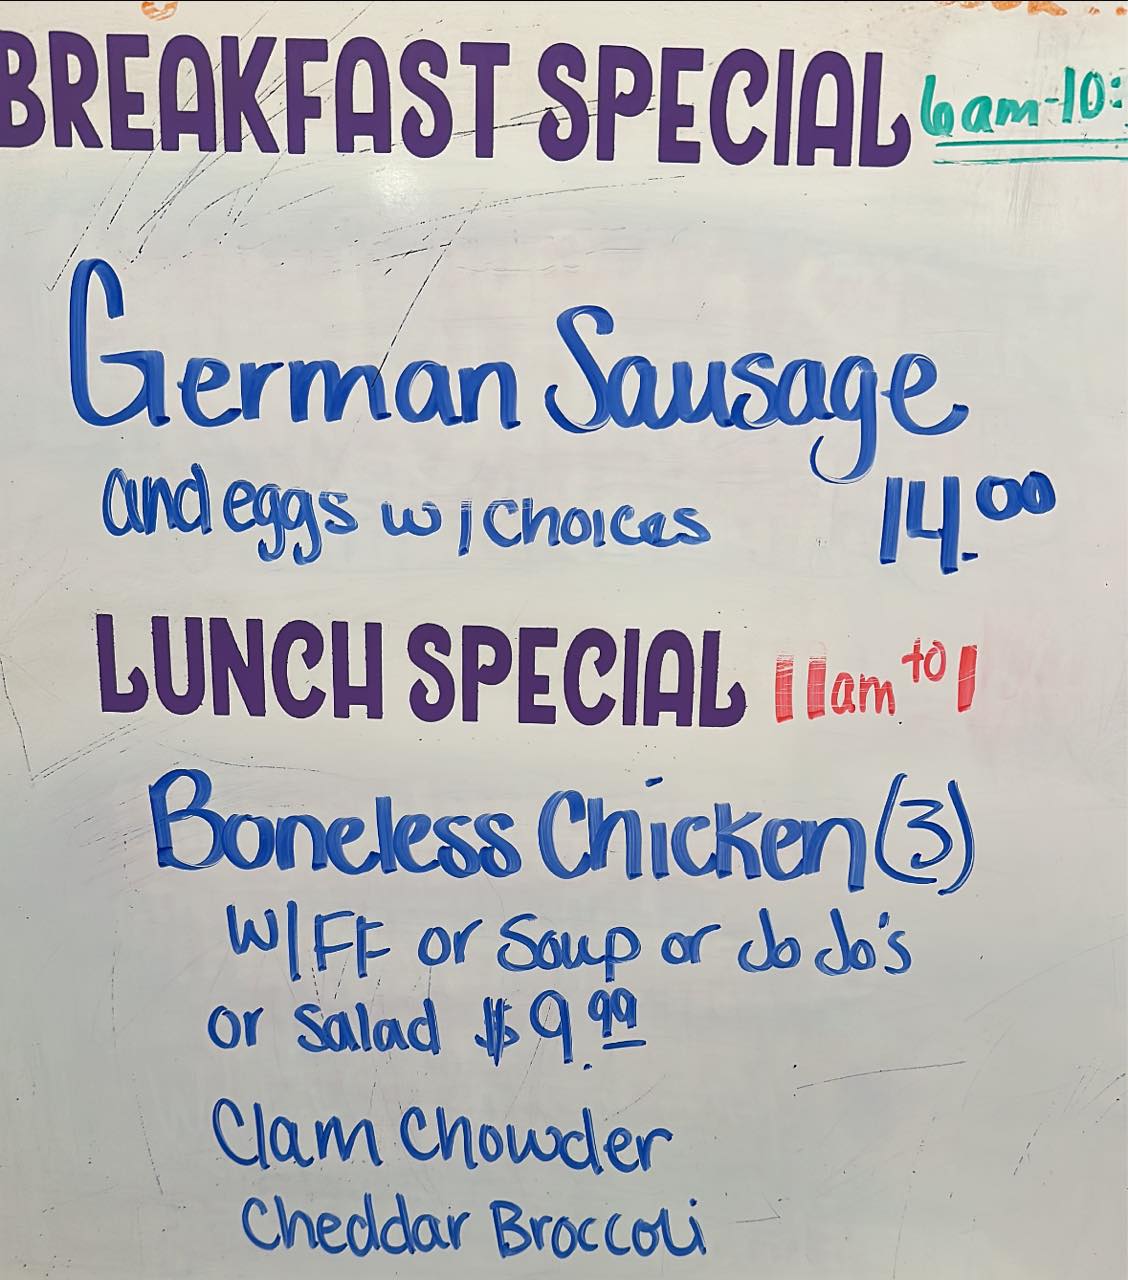 BREAKFAST SPECIAL 6am-10:
German Sausage
and eggs w/choices 14.00
LUNCH SPECIAL 11am to 1
Boneless Chicken (3)
W/FF or Soup or JoJo's
or Salad $9.99
Clam Chowder
Cheddar Broccoli